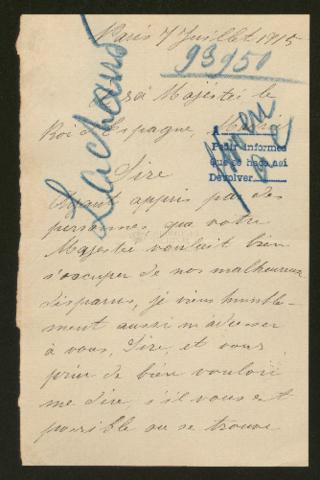 Paris 7 Juillet 1915
93950
Lachaus
sa Majesté le
Roi d'Espagne, Madrid
A
Pedir informes
que se haga así
Devolver
Sire
Ayant appris par des
personnes, que votre
Majesté voulait bien
s'occuper de nos malheureux
disparus, je viens humble-
ment aussi m'adresser
à vous, Sire, et vous
prier de bien vouloir
me dire, s'il vous est
possible ou se trouve